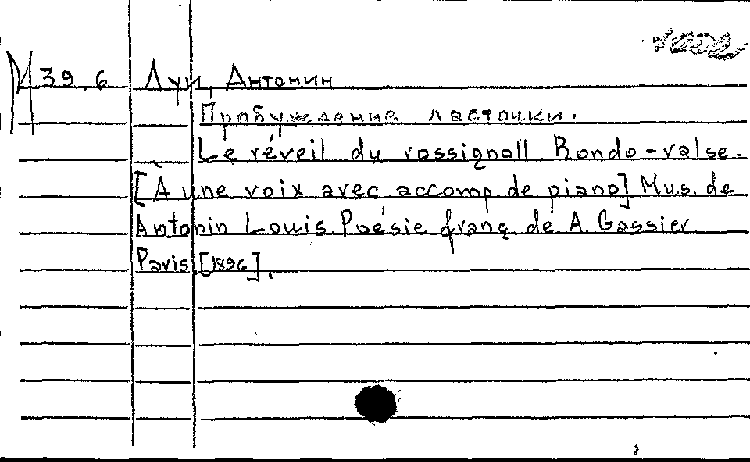 М 39.6 Луи, Антонин
Пробуждение ласточки.
Le réveil du rossignoll Rondo-valse.
[À une voix avec accomp. de piano] Mus. de
Antonin Louis. Poésie franç. de A. Gassier
Paris [1896].